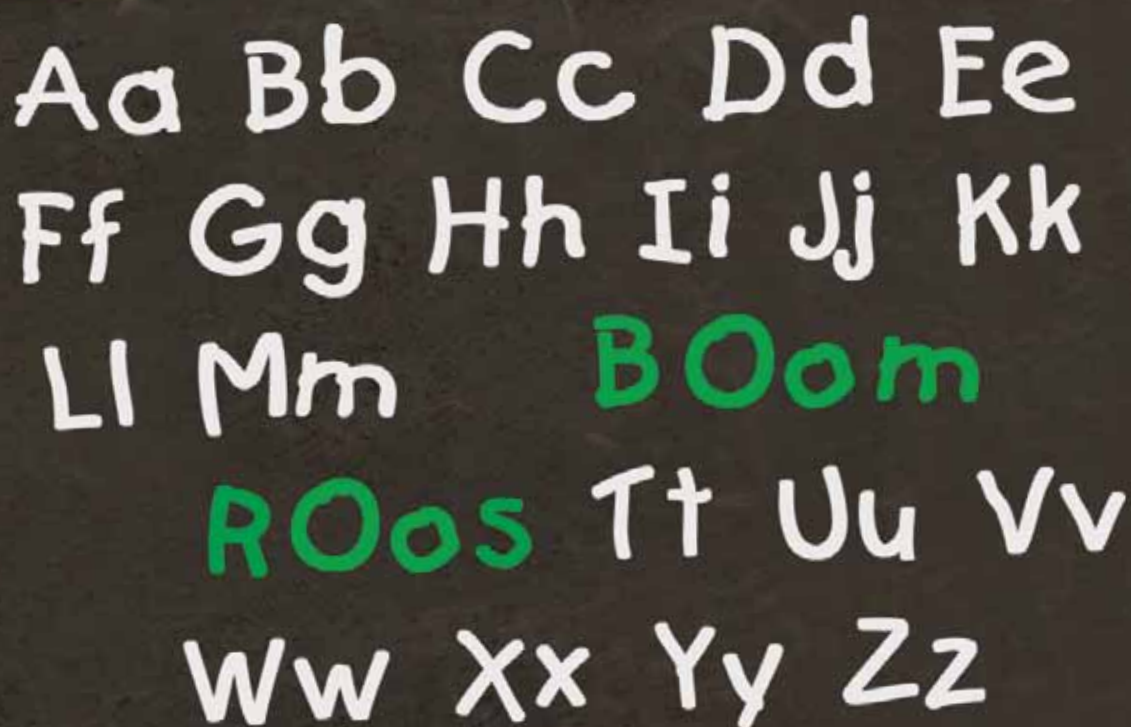 Aa Bb Cc Dd Ee
Ff Gg Hh Ii Jj Kk
Ll Mm BOom
ROos Tt Uu Vv
Ww Xx Yy Zz